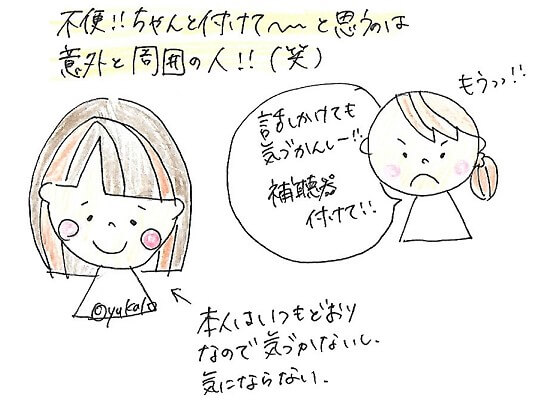 不便!!ちゃんと付けて〜〜と思うのは
意外と周囲の人!!(笑)
もうっっ!!
話しかけても
気づかんしー!!
補聴器
付けて!!
@yukako
本人はいつもどおり
なので気づかないし、
気にならない.